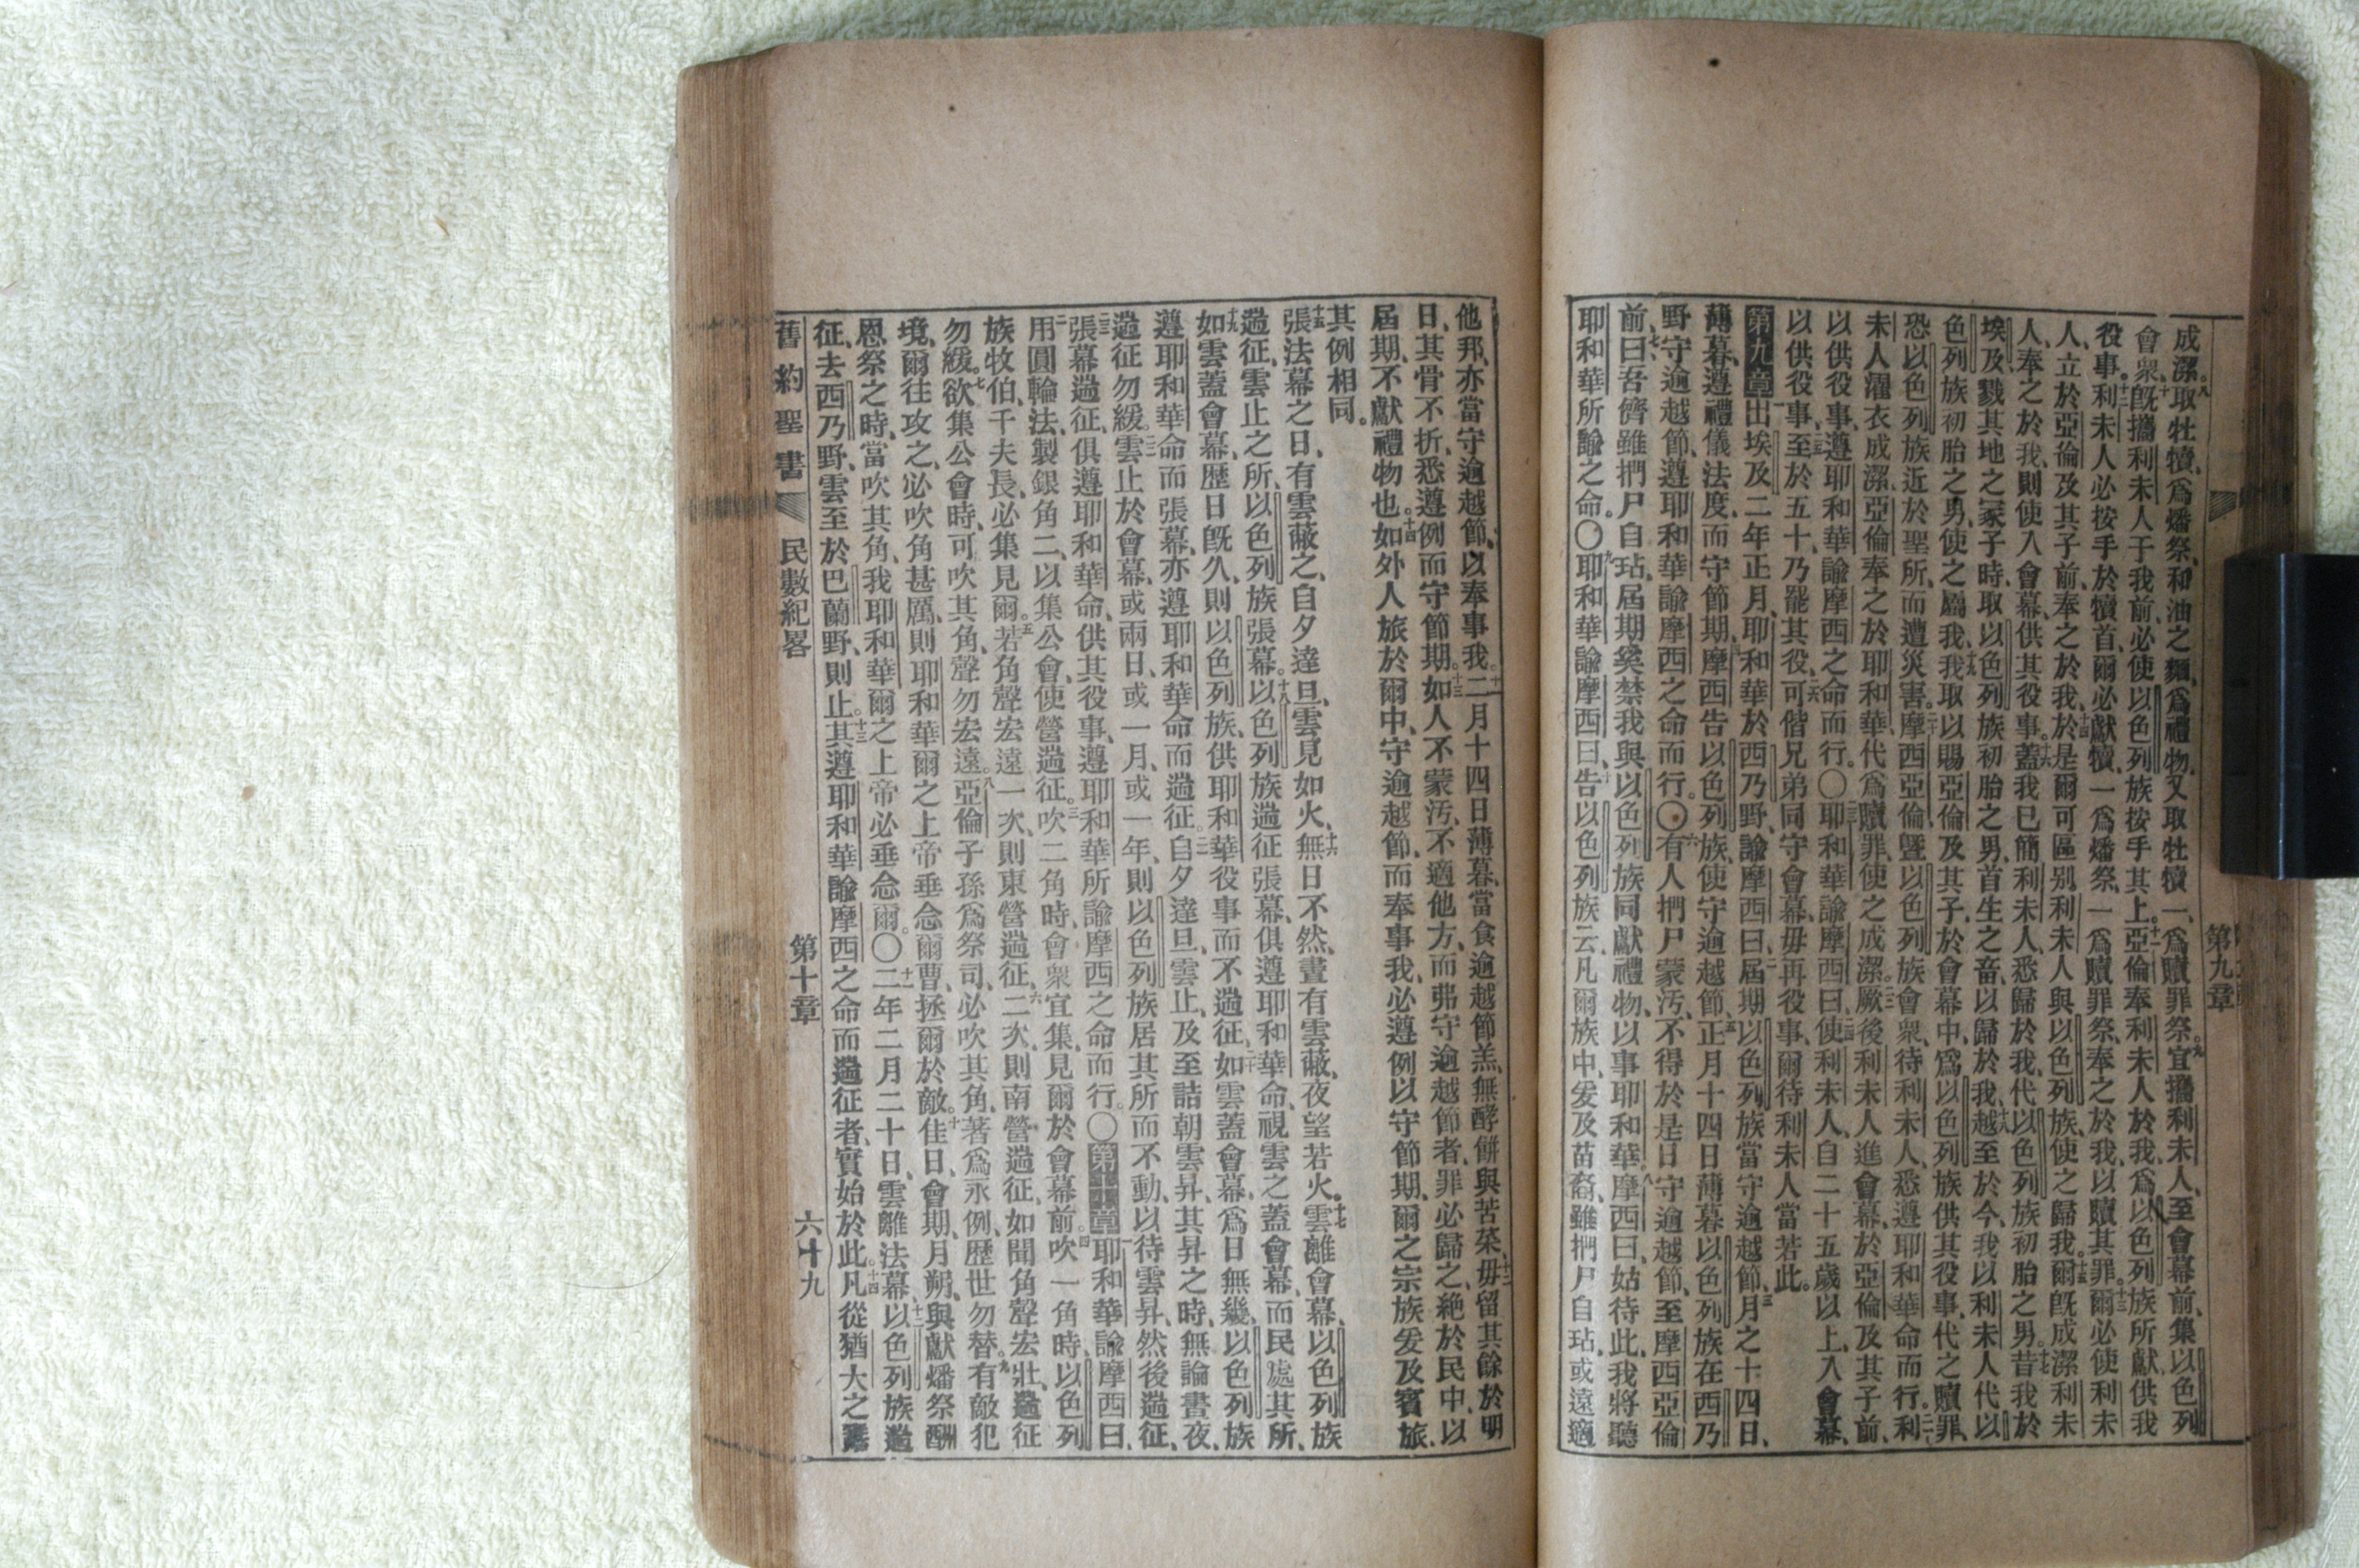 第九章
成潔、八取牡犢、爲燔祭、和油之麵、爲禮物、又取牡犢一、爲贖罪祭。九宜攜利未人、至會幕前、集以色列
會衆、十旣攜利未人于我前、必使以色列族按手其上。十一亞倫奉利未人於我、爲以色列族所獻、供我
役事。十二利未人必按手於犢首、爾必獻犢、一爲燔祭、一爲贖罪祭、奉之於我、以贖其罪。十三爾必使利未
人、立於亞倫及其子前、奉之於我、十四於是爾可區別利未人與以色列族、使之歸我。十五爾旣成潔利未
人、奉之於我、則使入會幕、供其役事。十六蓋我已簡利未人、悉歸於我、代以色列族初胎之男。十七昔我於
埃及、戮其地之冢子時、取以色列族初胎之男、首生之畜、以歸於我、越至於今、十八我以利未人代以
色列族初胎之男、使之屬我、十九我取以賜亞倫及其子、於會幕中、爲以色列族供其役事、代之贖罪、
恐以色列族近於聖所、而遭災害。二十摩西亞倫曁以色列族會衆、待利未人、悉遵耶和華命而行。二一利
未人濯衣成潔、亞倫奉之於耶和華、代爲贖罪、使之成潔。二二厥後利未人進會幕、於亞倫及其子前、
以供役事、遵耶和華諭摩西之命而行。〇二三耶和華諭摩西曰、二四使利未人、自二十五歲以上、入會幕、
以供役事、二五至於五十、乃罷其役、二六可偕兄弟同守會幕、毋再役事、爾待利未人當若此。
第九章一出埃及二年正月、耶和華於西乃野、諭摩西曰、二屆期以色列族當守逾越節、三月之十四日、
薄暮、遵禮儀法度、而守節期、四摩西告以色列族、使守逾越節、五正月十四日薄暮、以色列族在西乃
野、守逾越節、遵耶和華諭摩西之命而行。〇六有人捫尸蒙汚、不得於是日守逾越節、至摩西亞倫
前、七曰、吾儕雖捫尸自玷、屆期奚禁我與以色列族同獻禮物、以事耶和華。八摩西曰、姑待此、我將聽
耶和華所諭之命。〇九耶和華諭摩西曰、十告以色列族云、凡爾族中、爰及苗裔、雖捫尸自玷、或遠適
他邦、亦當守逾越節、以奉事我。十一二月十四日薄暮、當食逾越節羔、無酵餅與苦菜、十二毋留其餘於明
日、其骨不折、悉遵例而守節期。十三如人不蒙汚、不適他方、而弗守逾越節者、罪必歸之、絕於民中、以
屆期、不獻禮物也。十四如外人旅於爾中、守逾越節、而奉事我、必遵例以守節期、爾之宗族爰及賓旅、
其例相同。
十五張法幕之日、有雲蔽之、自夕達旦、雲見如火、十六無日不然、晝有雲蔽、夜望若火。十七雲離會幕、以色列族
遄征、雲止之所、以色列族張幕。十八以色列族遄征張幕、俱遵耶和華命、視雲之蓋會幕、而民處其所、
十九如雲蓋會幕、歷日旣久、則以色列族、供耶和華役事、而不遄征、二十如雲蓋會幕、爲日無幾、以色列族
遵耶和華命而張幕、亦遵耶和華命而遄征。二一自夕達旦、雲止、及至詰朝雲昇、其昇之時、無論晝夜、
遄征勿緩。二二雲止於會幕、或兩日、或一月、或一年、則以色列族居其所而不動、以待雲昇、然後遄征、
二三張幕遄征、俱遵耶和華命、供其役事、遵耶和華所諭摩西之命而行。〇第十章一耶和華諭摩西曰、
二用圓輪法、製銀角二、以集公會、使營遄征。三吹二角時、會衆宜集、見爾於會幕前。四吹一角時、以色列
族牧伯、千夫長、必集見爾。五若角聲宏遠一次、則東營遄征、六二次、則南營遄征、如聞角聲宏壯、遄征
勿緩。七欲集公會時、可吹其角、聲勿宏遠。八亞倫子孫爲祭司、必吹其角、著爲永例、歷世勿替。九有敵犯
境、爾往攻之、必吹角甚厲、則耶和華爾之上帝垂念爾曹、拯爾於敵。十佳日、會期、月朔、與獻燔祭酬
恩祭之時、當吹其角、我耶和華爾之上帝必垂念爾。〇十一二年二月二十日、雲離法幕、十二以色列族遄
征、去西乃野、雲至於巴蘭野、則止。十三其遵耶和華諭摩西之命而遄征者、實始於此。十四凡從猶大之
舊約聖書 民數紀畧 第十章 六十九